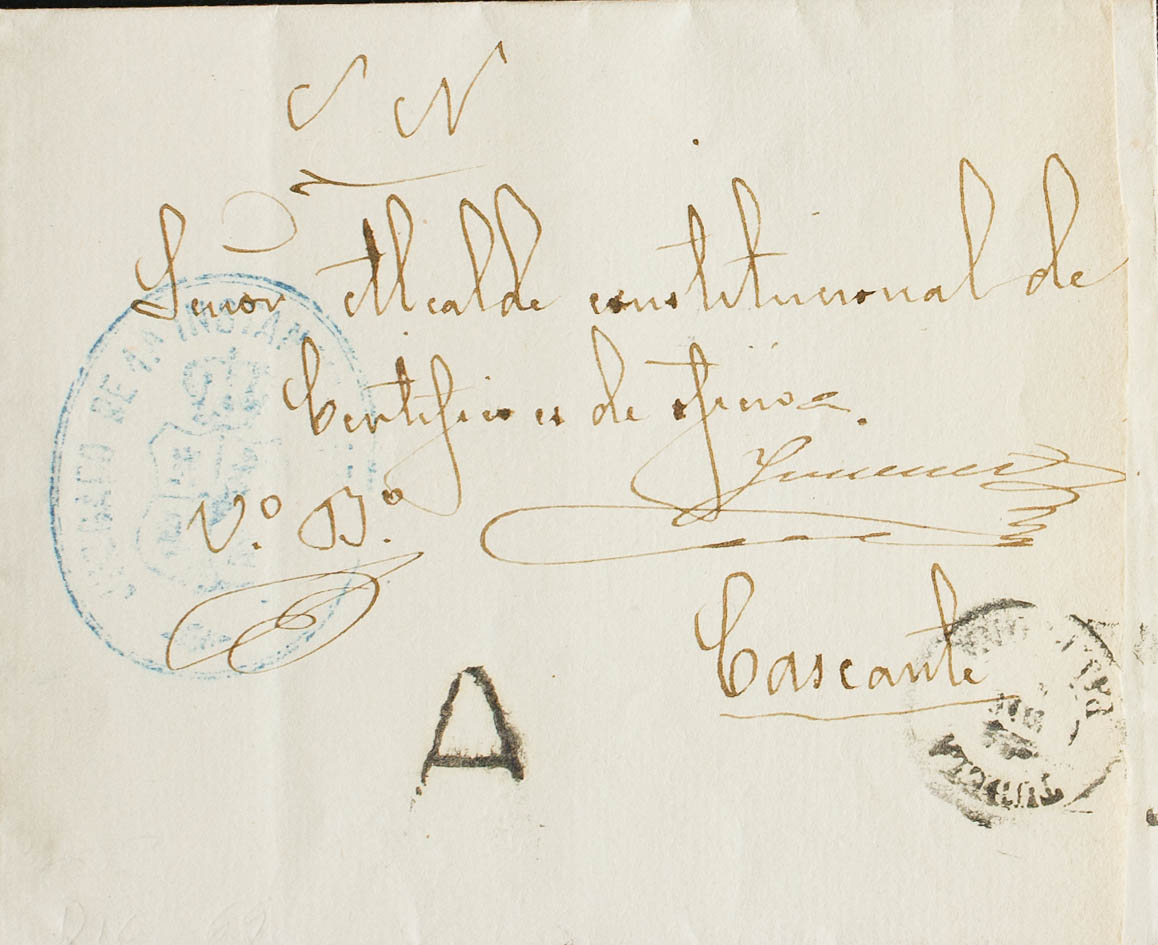 S N
Señor Alcalde constitucional de
Certificion de oficio.
Jimenez
V.º B.º
Cascante
JUZGADO DE 1A INSTAN
A
TUDELA